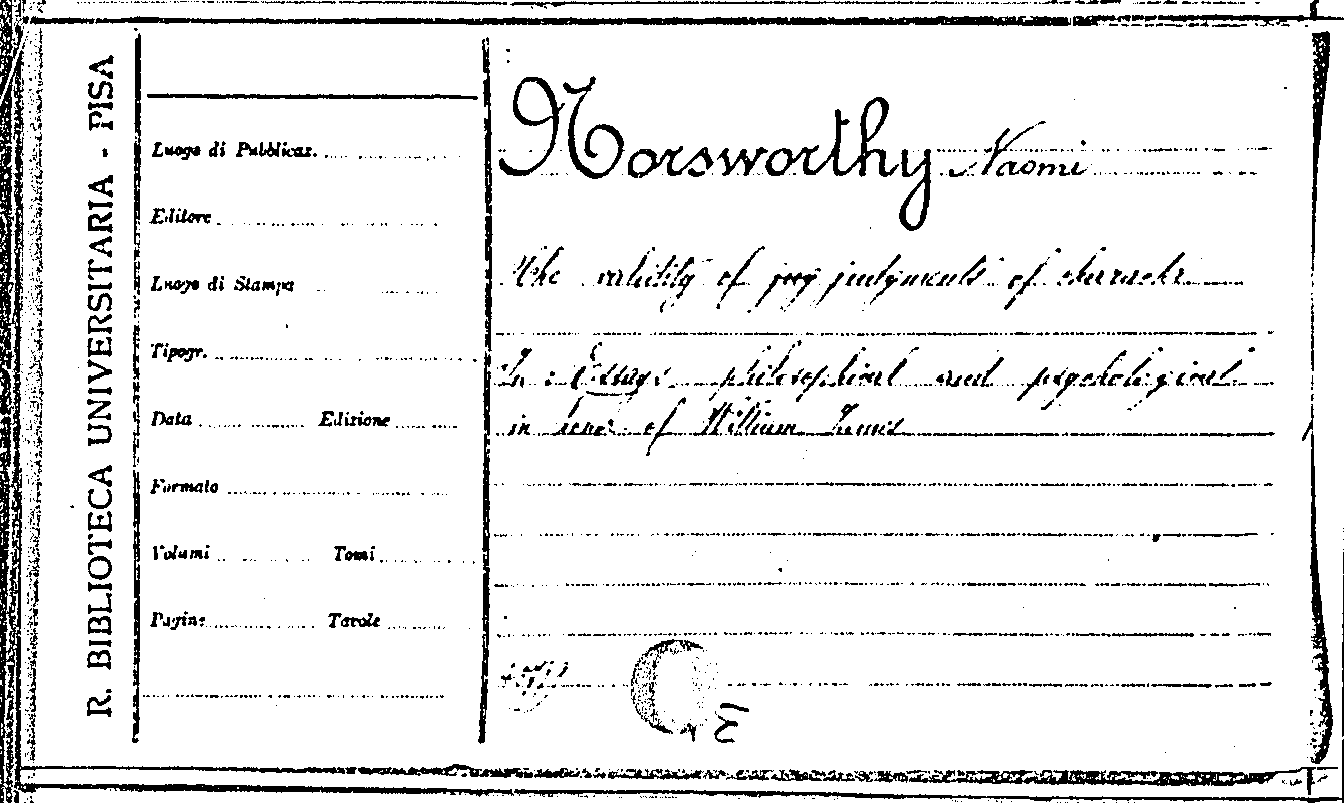 R. BIBLIOTECA UNIVERSITARIA - PISA
Luogo di Pubblicaz.
Editore
Luogo di Stampa
Tipogr.
Data Edizione
Formato
Volumi Tomi
Pagine Tavole
Norsworthy Naomi
The validity of judgments of
In : Essays philosophical and psychological
in honor of William James